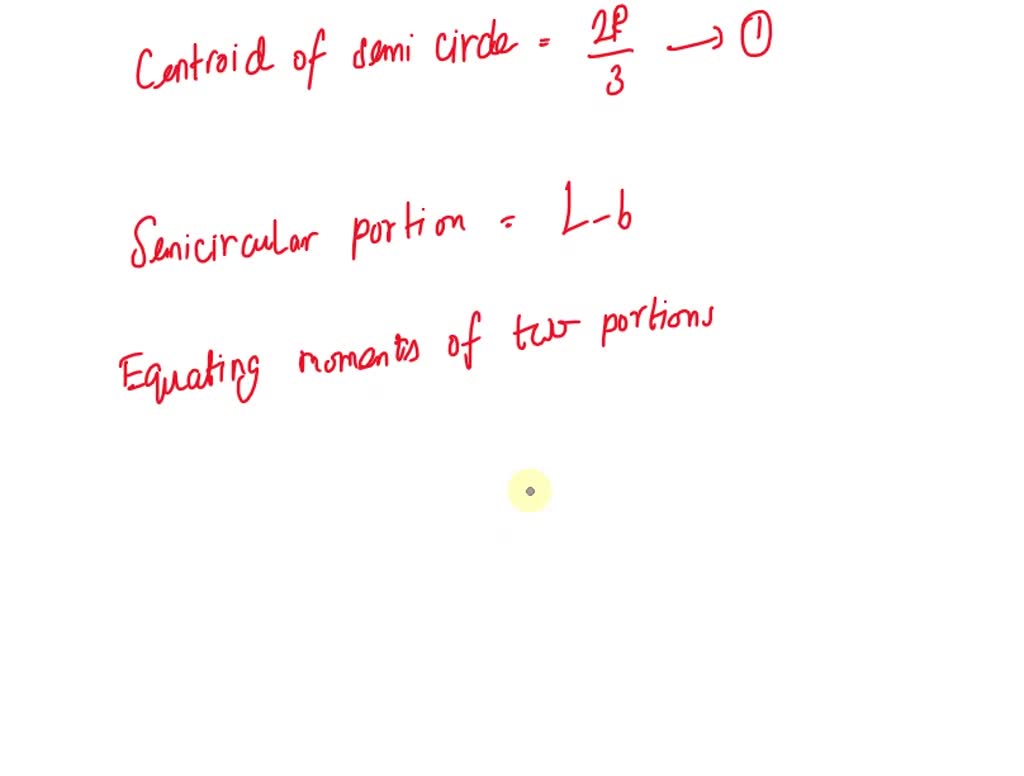 Centroid of semi circle = 2P/3 → ①
Semicircular portion = L-b
Equating moments of two portions